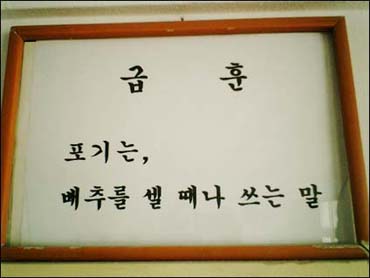 급 훈
포기는,
배추를 셀 때나 쓰는 말